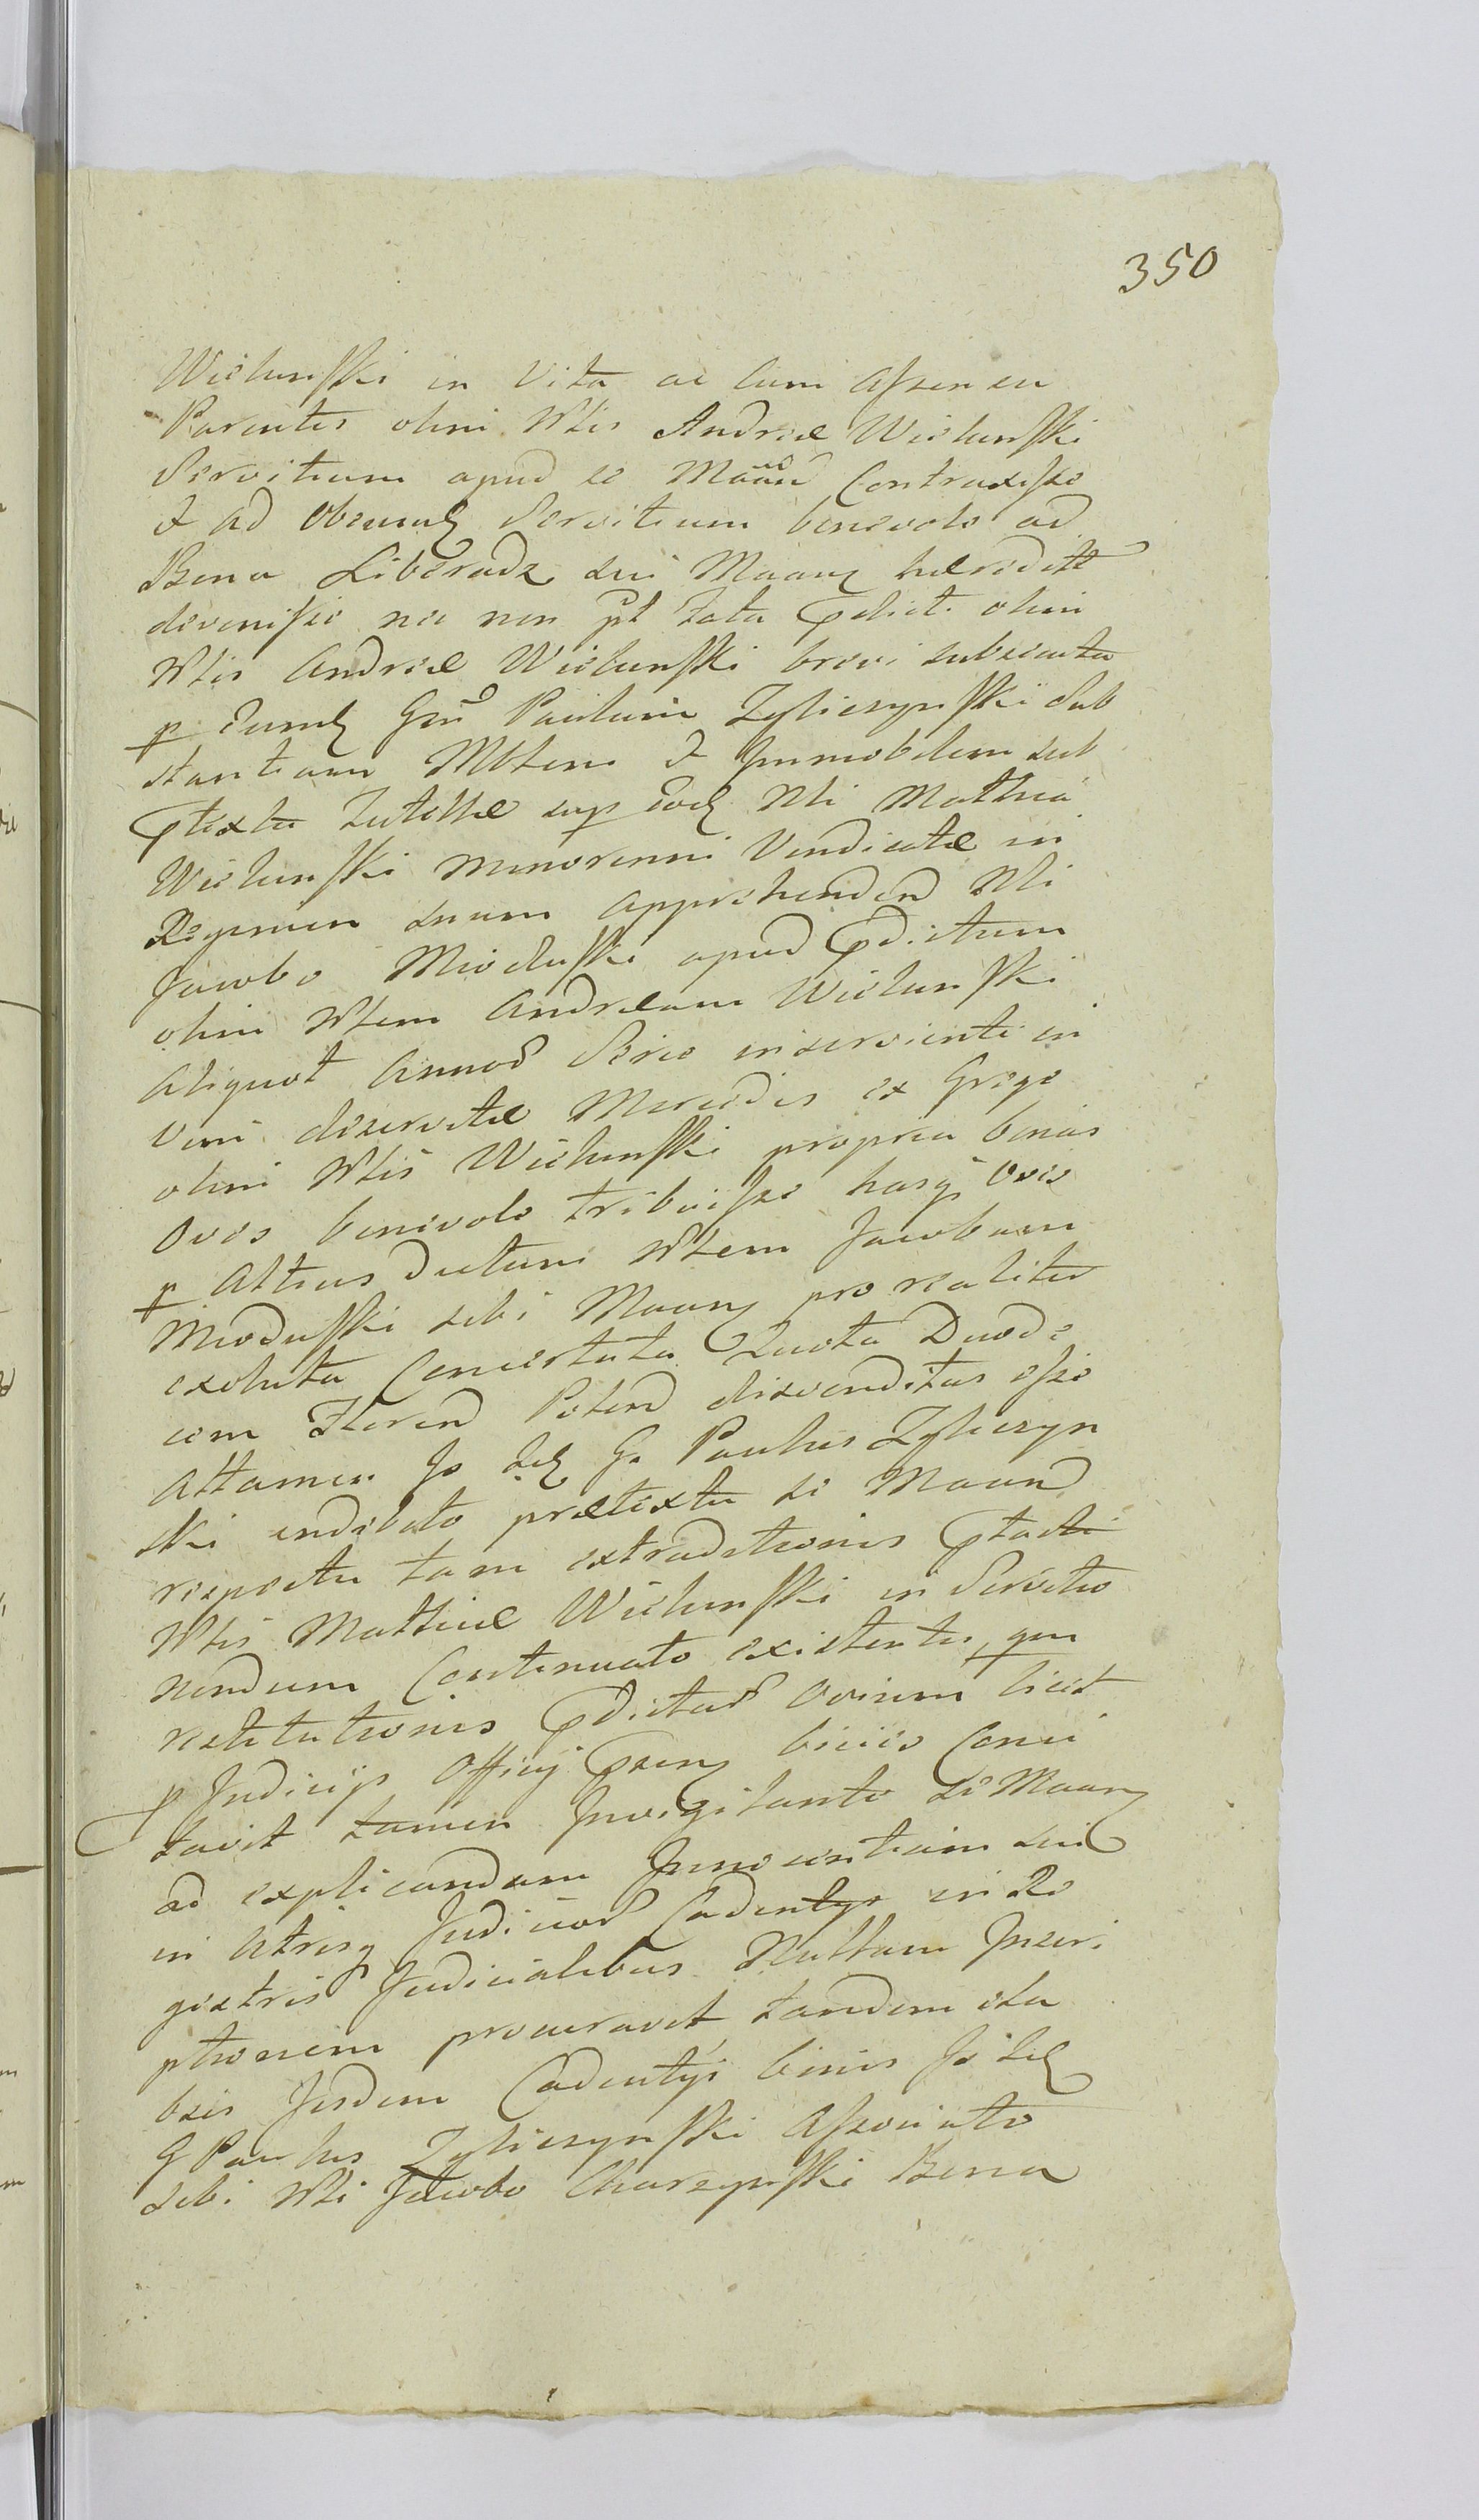 350
Wielunski in Vita ac cum Assensu
Parentis olim Nblis Andreæ Wielunski
Servitium apud se Maand Contraxisse
& ad Obeund Servitium benevole ad
Bona Liberadz sui Maang hæreditt
devenisse nec non pt fata pdicti olim
Nblis Andreæ Wielunski brevi subsecuta
p eund Gsm Paulum Zyliczynski Sub
stantiam Mblem & Immobilem sub
ptextu Tutellæ sup eod Nbli Mathia
Wielunski minorenni Vendicatæ in
Regimen suum apprehendend Nbli
Jacobo Mioduski apud pdictum
olim Nblem Andream Wielunski
aliquot Annos Serie inservienti in
vim deservitæ Mercedis ex Grege
olim Nblis Wielunski propria binas
Oves benevole tribuisse hasq Oves
p attius dictum Nblem Jacobum
Mioduski sibi Maang pro realiter
exoluta Concertata Quota Duode
cem Floren Polon disvenditas esse
Attamen Js Id G. Paulus Zyliczyn
ski indebito prætextu se Maand
respectu tam extraditionis pfacti
Nblis Mathiæ Wielunski in Servitio
nondum Continuato existentis, qm
restitutionis pdictar Ovium licet
p Judicijs Officij psens bieies Conci
tavit tamen Invigilante se Maang
ad explicandam Innocentiam sui
in Atrisq Judicior Cadentys in Re
gistris Judicialibus Nullam Inscri
ptionem procuravit tandem ela
bsis Jisdem Cadentys binis Js Id
G Paulus Zyliczynski Associato
sibi Nbli Jacobo Charzynski Bona